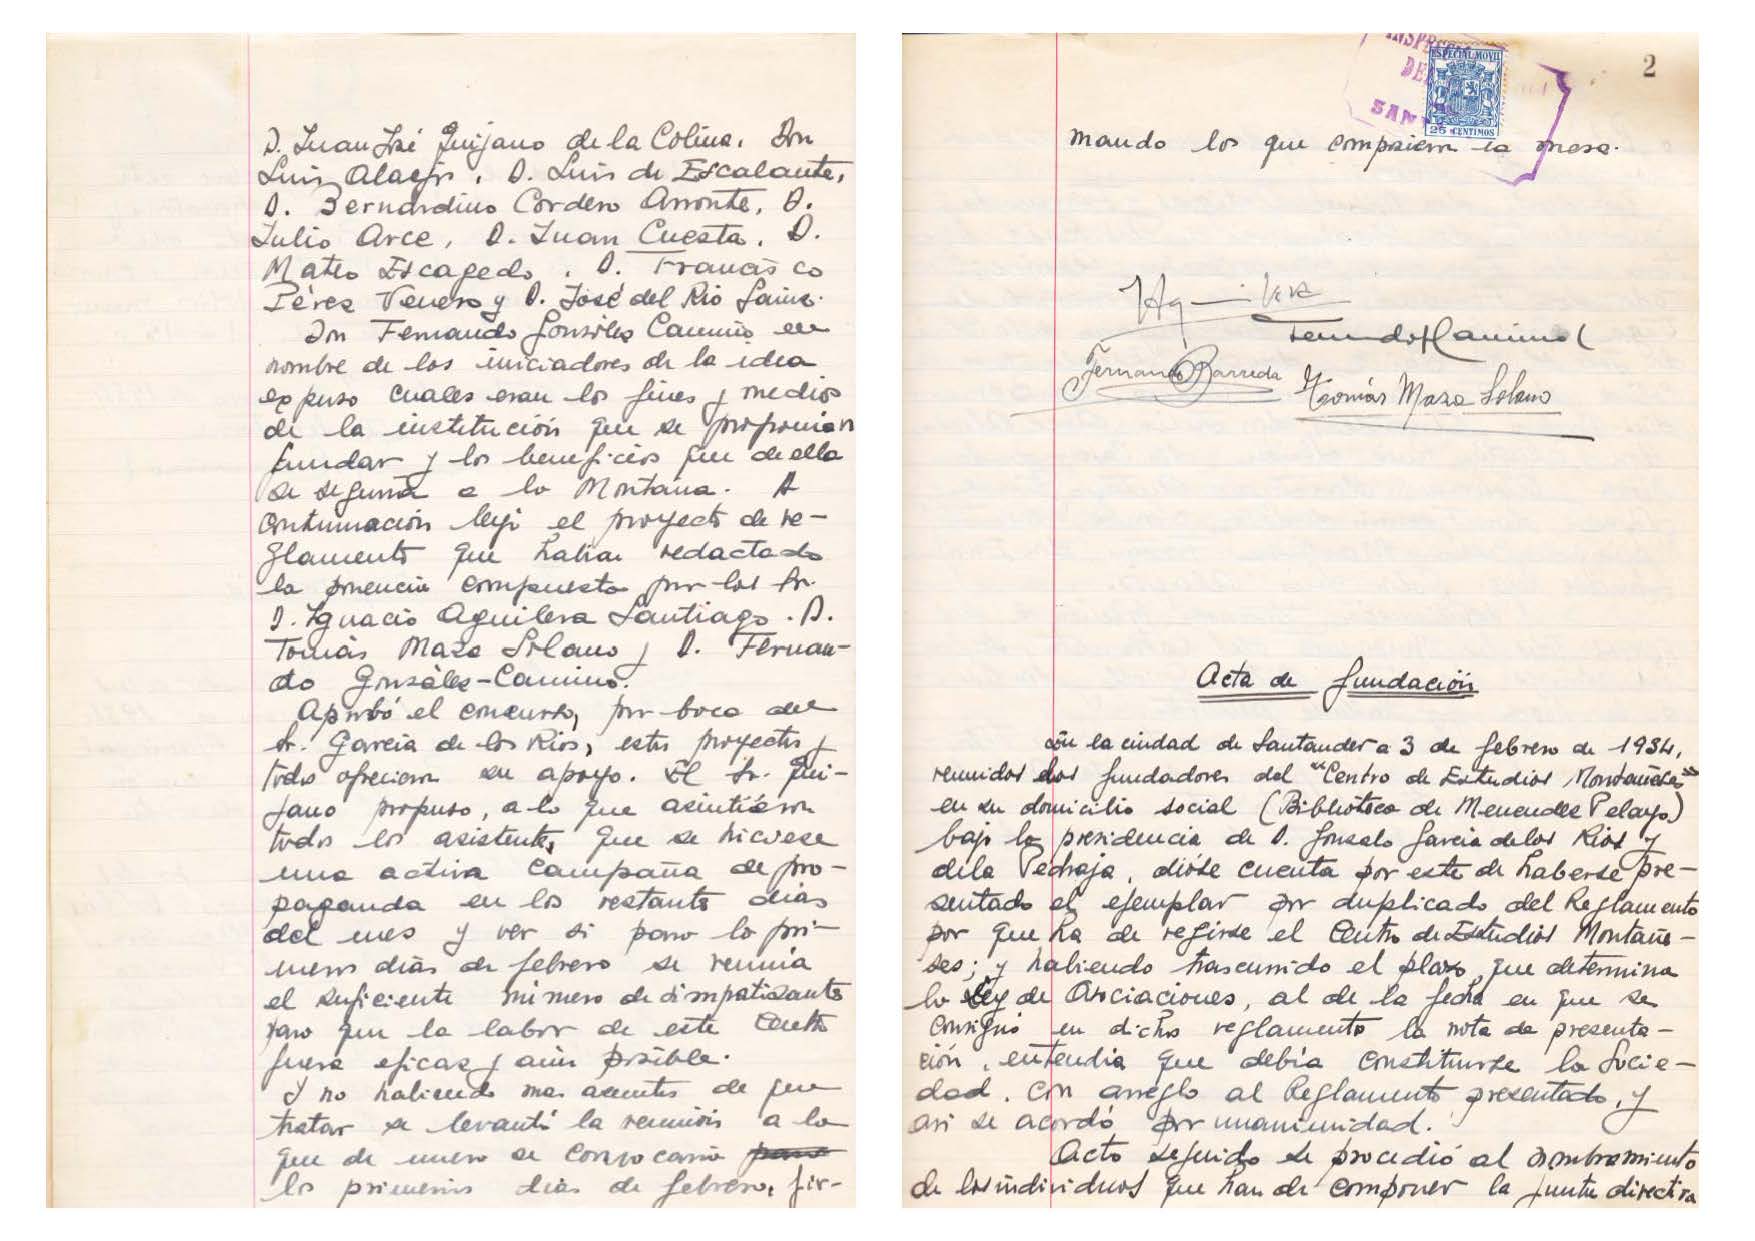 D. Juan José Quijano de la Colina, Don
Luis Alaejos, D. Luis de Escalante,
D. Bernardino Cordero Arronte, D.
Julio Arce, D. Juan Cuesta, D.
Mateo Escagedo, D. Francisco
Pérez Venero y D. José del Rio Sainz.
Don Fernando González Camino en
nombre de los iniciadores de la idea
expuso cuales eran los fines y medios
de la institución que se proponian
fundar y los beneficios que de ella
se seguiría a la Montaña. A
continuación leyó el proyecto de re-
glamento que habian redactado
la ponencia compuesta por los Sr.
D. Ignacio Aguilera Santiago. D.
Tomás Maza Solano y D. Fernan-
do González-Camino.
Aprobó el concurso, por boca del
Sr. García de los Rios, este proyecto y
todos ofrecieron su apoyo. El Sr. Qui-
jano propuso, a lo que asintieron
todos los asistentes, que se hiciese
una activa campaña de pro-
paganda en los restantes dias
del mes y ver si para lo pri-
meros dias de febrero se reunia
el suficiente número de simpatizantes
para que la labor de este Centro
fuera eficaz y aún posible.
Y no habiendo mas asuntos de que
tratar se levantó la reunión a la
que de nuevo se convocaria para
los primeros dias de febrero, fir-
INSPECCI
DE
SAN
ESPECIAL MOVIL
25 CENTIMOS
2
mando los que compusieron la mesa.
Fernando G Camino
Fernando Barreda
Tomás Maza Solano
Acta de fundación
En la ciudad de Santander a 3 de febrero de 1934,
reunidos los fundadores del "Centro de Estudios Montañeses"
en su domicilio social (Biblioteca de Menendez Pelayo)
bajo la presidencia de D. Gonzalo García de los Rios y
de la Pedraja, dióse cuenta por este de haberse pre-
sentado el ejemplar por duplicado del Reglamento
por que ha de regirse el Centro de Estudios Montañe-
ses; y habiendo trascurrido el plazo que determina
la Ley de Asociaciones, al de la fecha en que se
consignó en dicho reglamento la nota de presenta-
ción, entendia que debía constituirse la Socie-
dad, con arreglo al Reglamento presentado, y
asi se acordó por unanimidad.
Acto seguido se procedió al nombramiento
de los individuos que han de componer la junta directiva